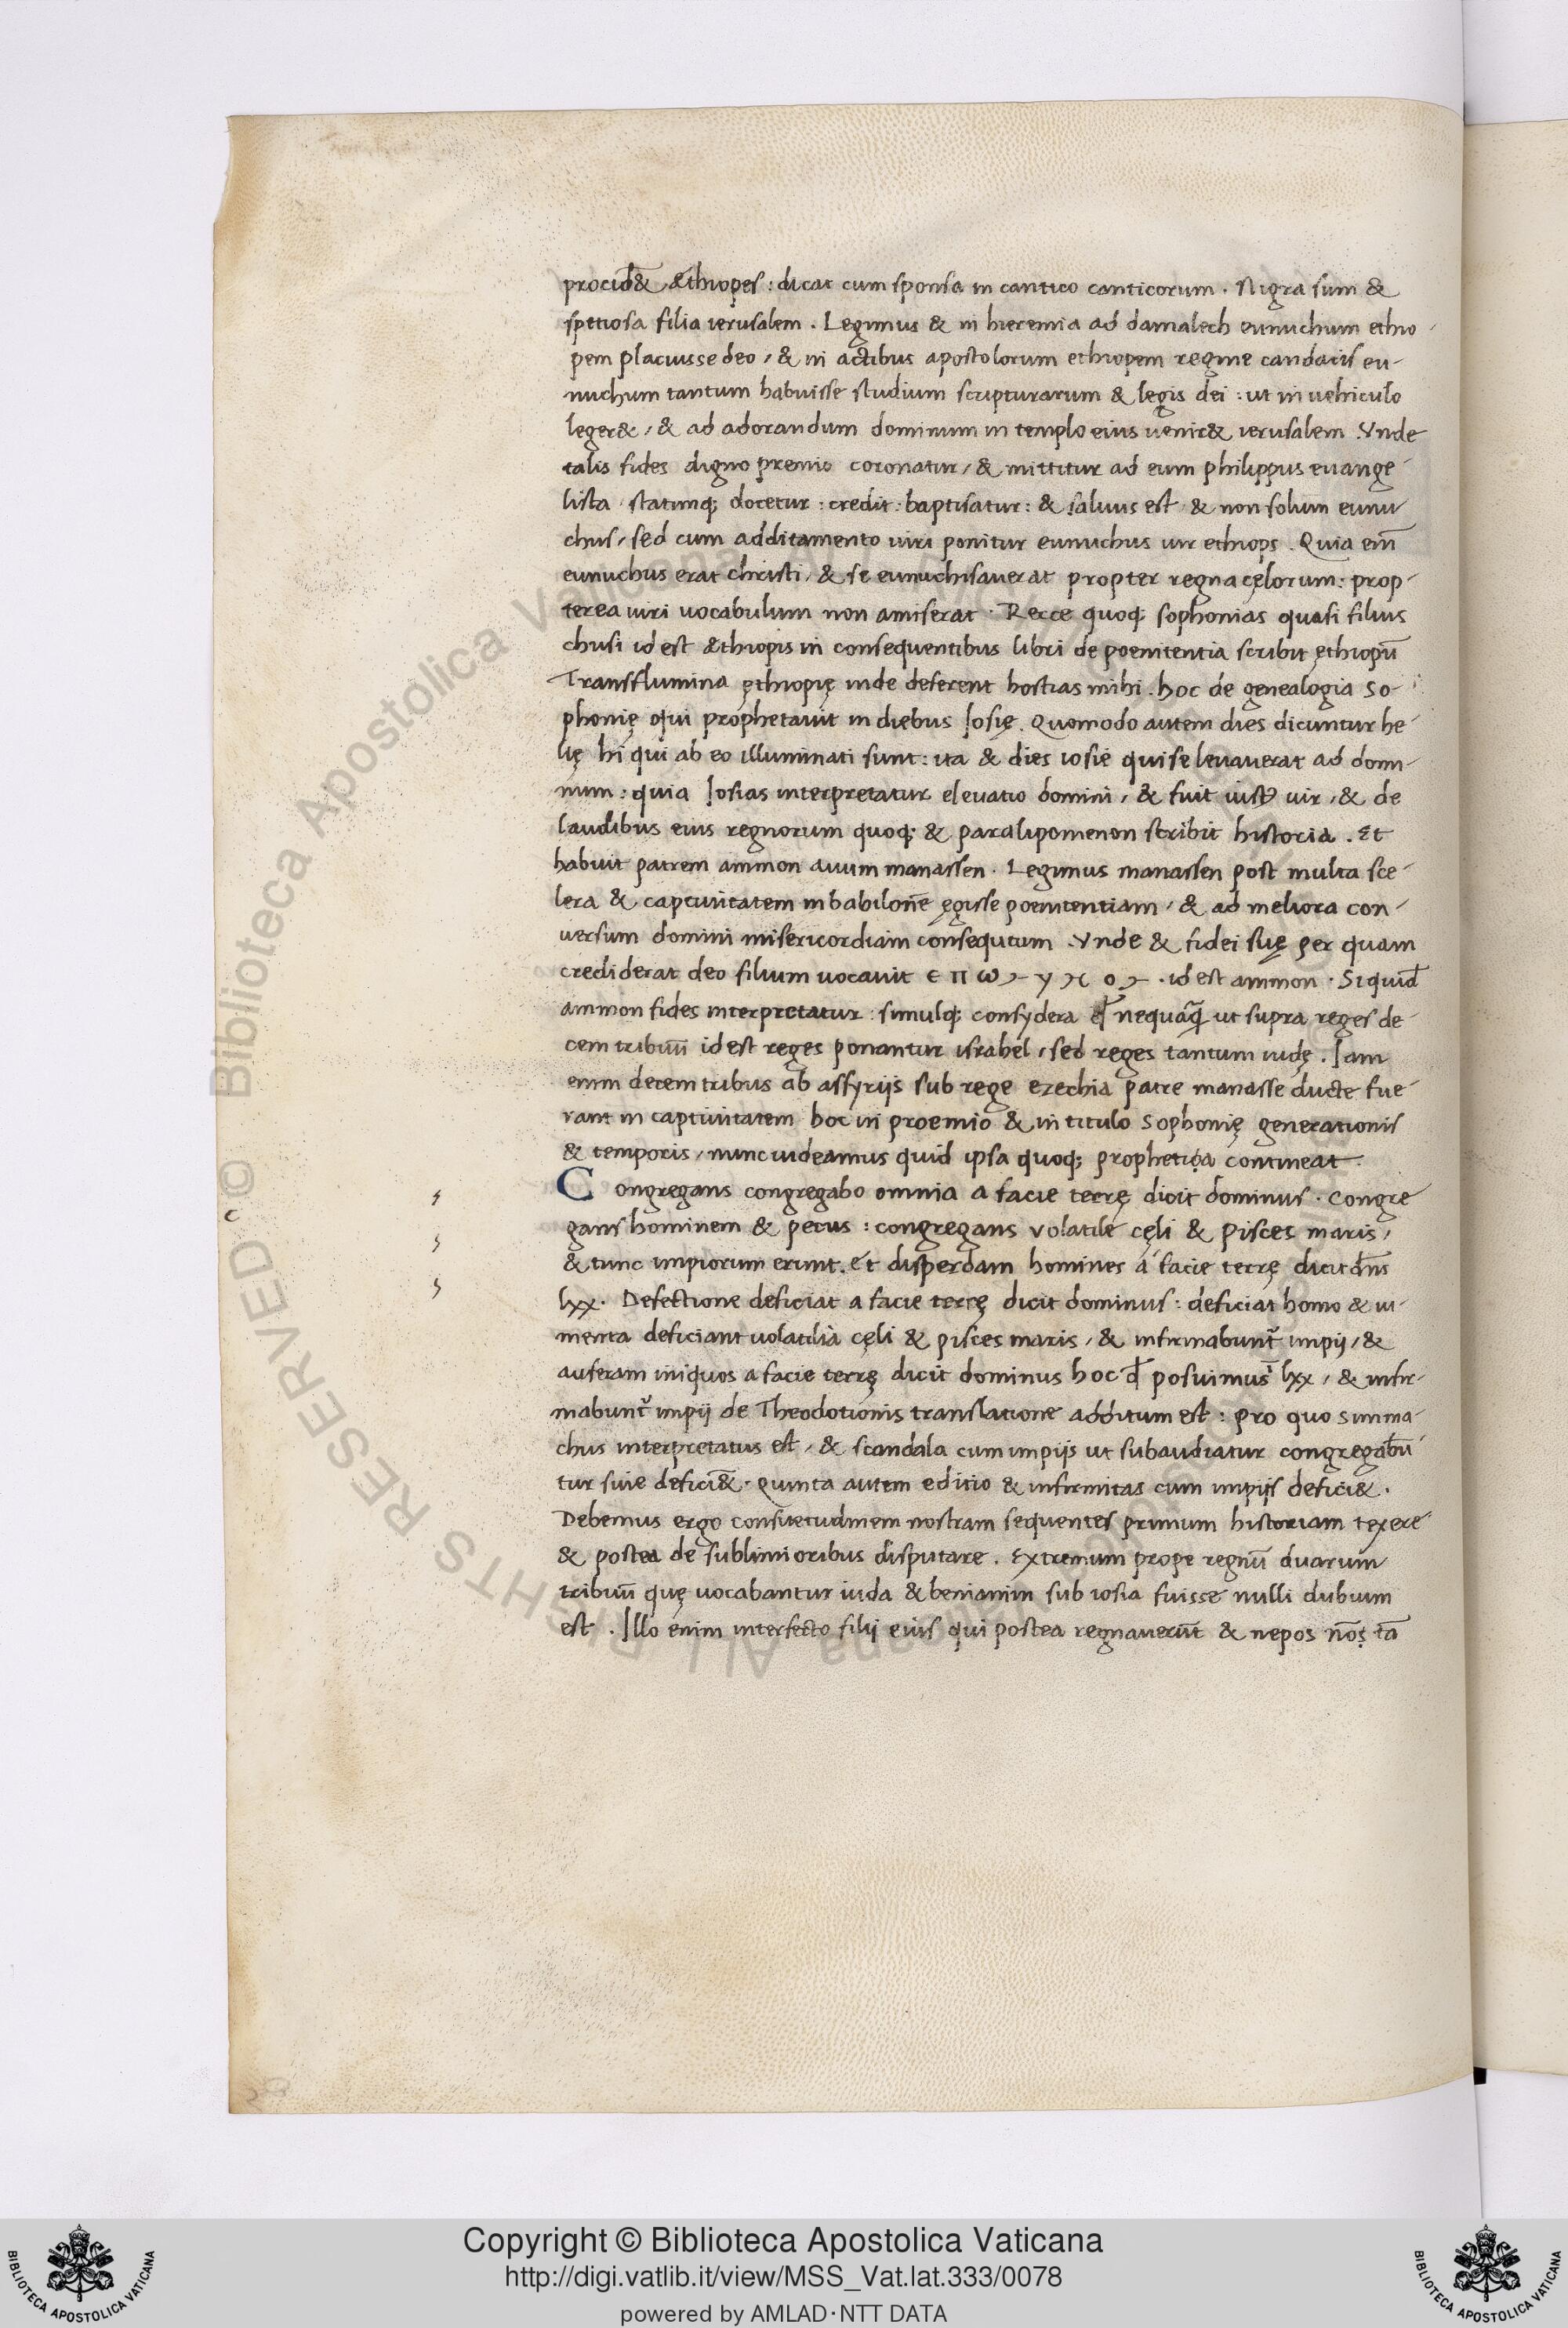 procid& Æthiopes : dicat cum sponsa in cantico canticorum . Nigra sum &
spetiosa filia ierusalem . Legimus & in hieremia ad damalech eunuchum ethio-
pem placuisse deo / & in actibus apostolorum ethiopem regine candacis eu-
nuchum tantum habuisse studium scripturarum & legis dei : ut in uehiculo
leger& / & ad adorandum dominum in templo eius uenir& ierusalem . Vnde
talis fides digno premio coronatur / & mittitur ad eum philippus euange-
lista statimq; docetur : credit : baptisatur : & saluus est & non solum eunu-
chus / sed cum additamento uiri ponitur eunuchus uir ethiops . Quia em̄
eunuchus erat christi / & se eunuchisauerat propter regna cęlorum : prop-
terea uiri uocabulum non amiserat . Recte quoq; sophonias quasi filius
chusi id est æthiopis in consequentibus libri de poenitentia scribit ęthiopū
Transflumina ęthiopię inde deferent hostias mihi . hoc de genealogia So-
phonię qui prophetauit in diebus Iosię . Quomodo autem dies dicuntur he-
lię hi qui ab eo illuminati sunt : ita & dies iosie qui se leuauerat ad domi-
num : quia Iosias interpretatur eleuatio domini / & fuit iust9 uir / & de
laudibus eius regnorum quoq; & paralipomenon scribit historia . Et
habuit patrem ammon auum manassen . Legimus manassen post multa sce-
lera & captiuitatem in babilone ęgisse poenitentiam / & ad meliora con-
uersum domini misericordiam consequtum . Vnde & fidei suę per quam
crediderat deo filium uocauit . id est ammon . Siquid̄
ammon fides interpretatur : simulq; consydera nequāq̄ ut supra reges de-
cem tribuū id est reges ponantur israhel / sed reges tantum iudę . Iam
enim decem tribus ab assyrijs sub rege ezechia patre manasse ducte fue-
rant in captiuitatem hoc in proemio & in titulo Sophonię generationis
& temporis / nunc uideamus quid ipsa quoq; prophetica contineat .
Congregans congregabo omnia a facie terrę dicit dominus . Congre-
gans hominem & pecus : congregans volatile cęli & Pisces maris /
& tunc impiorum erunt . et disperdam homines á facie terrę dicit dn̄s
lxx . Defectione deficiat a facie terrę dicit dominus : deficiat homo & iu-
menta deficiant uolatilia cęli & pisces maris / & infirmabunt᷑ impij / &
auferam iniquos a facie terrę dicit dominus hoc qd̄ posuimus ī lxx / & infir-
mabunt᷑ impij de Theodotionis translatione additum est : pro quo Simma-
chus interpretatus est / & scandala cum impijs ut subaudiatur congregabū-
tur siue defici&̄ . Quinta autem editio & infirmitas cum impijs defici& .
Debemus ergo consuetudinem nostram sequentes primum historiam texere
& postea de sublimioribus disputare . Extremum prope regnū duarum
tribuū quę uocabantur iuda & beniamin sub iosia fuisse nulli dubium
est . Illo enim interfecto filij eius qui postea regnauerūt & nepos nōs tā
© Biblioteca Apostolica Vaticana ALL RIGHTS RESERVED
BIBLIOTECA APOSTOLICA VATICANA
Copyright © Biblioteca Apostolica Vaticana
http://digi.vatlib.it/view/MSS_Vat.lat.333/0078
powered by AMLAD·NTT DATA
BIBLIOTECA APOSTOLICA VATICANA